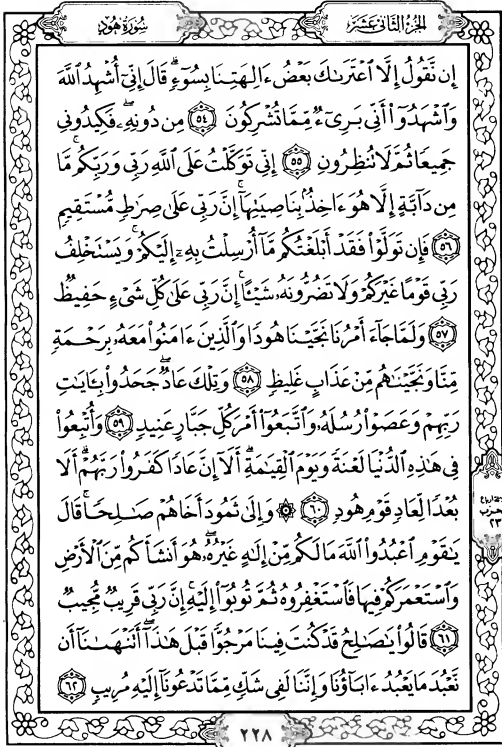 الجزء الثاني عشر
سورة هود
إِن نَّقُولُ إِلَّا ٱعۡتَرَىٰكَ بَعۡضُ ءَالِهَتِنَا بِسُوٓءٖۗ قَالَ إِنِّيٓ أُشۡهِدُ ٱللَّهَ
وَٱشۡهَدُوٓاْ أَنِّي بَرِيٓءٞ مِّمَّا تُشۡرِكُونَ ٥٤ مِن دُونِهِۦۖ فَكِيدُونِي
جَمِيعٗا ثُمَّ لَا تُنظِرُونِ ٥٥ إِنِّي تَوَكَّلۡتُ عَلَى ٱللَّهِ رَبِّي وَرَبِّكُمۚ مَّا
مِن دَآبَّةٍ إِلَّا هُوَ ءَاخِذُۢ بِنَاصِيَتِهَآۚ إِنَّ رَبِّي عَلَىٰ صِرَٰطٖ مُّسۡتَقِيمٖ
٥٦ فَإِن تَوَلَّوۡاْ فَقَدۡ أَبۡلَغۡتُكُم مَّآ أُرۡسِلۡتُ بِهِۦٓ إِلَيۡكُمۡۚ وَيَسۡتَخۡلِفُ
رَبِّي قَوۡمًا غَيۡرَكُمۡ وَلَا تَضُرُّونَهُۥ شَيۡـًٔاۚ إِنَّ رَبِّي عَلَىٰ كُلِّ شَيۡءٍ حَفِيظٞ
٥٧ وَلَمَّا جَآءَ أَمۡرُنَا نَجَّيۡنَا هُودٗا وَٱلَّذِينَ ءَامَنُواْ مَعَهُۥ بِرَحۡمَةٖ
مِّنَّا وَنَجَّيۡنَٰهُم مِّنۡ عَذَابٍ غَلِيظٖ ٥٨ وَتِلۡكَ عَادٞۖ جَحَدُواْ بِـَٔايَٰتِ
رَبِّهِمۡ وَعَصَوۡاْ رُسُلَهُۥ وَٱتَّبَعُوٓاْ أَمۡرَ كُلِّ جَبَّارٍ عَنِيدٖ ٥٩ وَأُتۡبِعُواْ
فِي هَٰذِهِ ٱلدُّنۡيَا لَعۡنَةٗ وَيَوۡمَ ٱلۡقِيَٰمَةِۗ أَلَآ إِنَّ عَادٗا كَفَرُواْ رَبَّهُمۡۗ أَلَا
بُعۡدٗا لِّعَادٖ قَوۡمِ هُودٖ ٦٠ ۞ وَإِلَىٰ ثَمُودَ أَخَاهُمۡ صَٰلِحٗاۚ قَالَ
يَٰقَوۡمِ ٱعۡبُدُواْ ٱللَّهَ مَا لَكُم مِّنۡ إِلَٰهٍ غَيۡرُهُۥۖ هُوَ أَنشَأَكُم مِّنَ ٱلۡأَرۡضِ
وَٱسۡتَعۡمَرَكُمۡ فِيهَا فَٱسۡتَغۡفِرُوهُ ثُمَّ تُوبُوٓاْ إِلَيۡهِۚ إِنَّ رَبِّي قَرِيبٞ مُّجِيبٞ
٦١ قَالُواْ يَٰصَٰلِحُ قَدۡ كُنتَ فِينَا مَرۡجُوّٗا قَبۡلَ هَٰذَآۖ أَتَنۡهَىٰنَآ أَن
نَّعۡبُدَ مَا يَعۡبُدُ ءَابَآؤُنَا وَإِنَّنَا لَفِي شَكّٖ مِّمَّا تَدۡعُونَآ إِلَيۡهِ مُرِيبٖ ٦٢
حزب
٢٣
٢٢٨